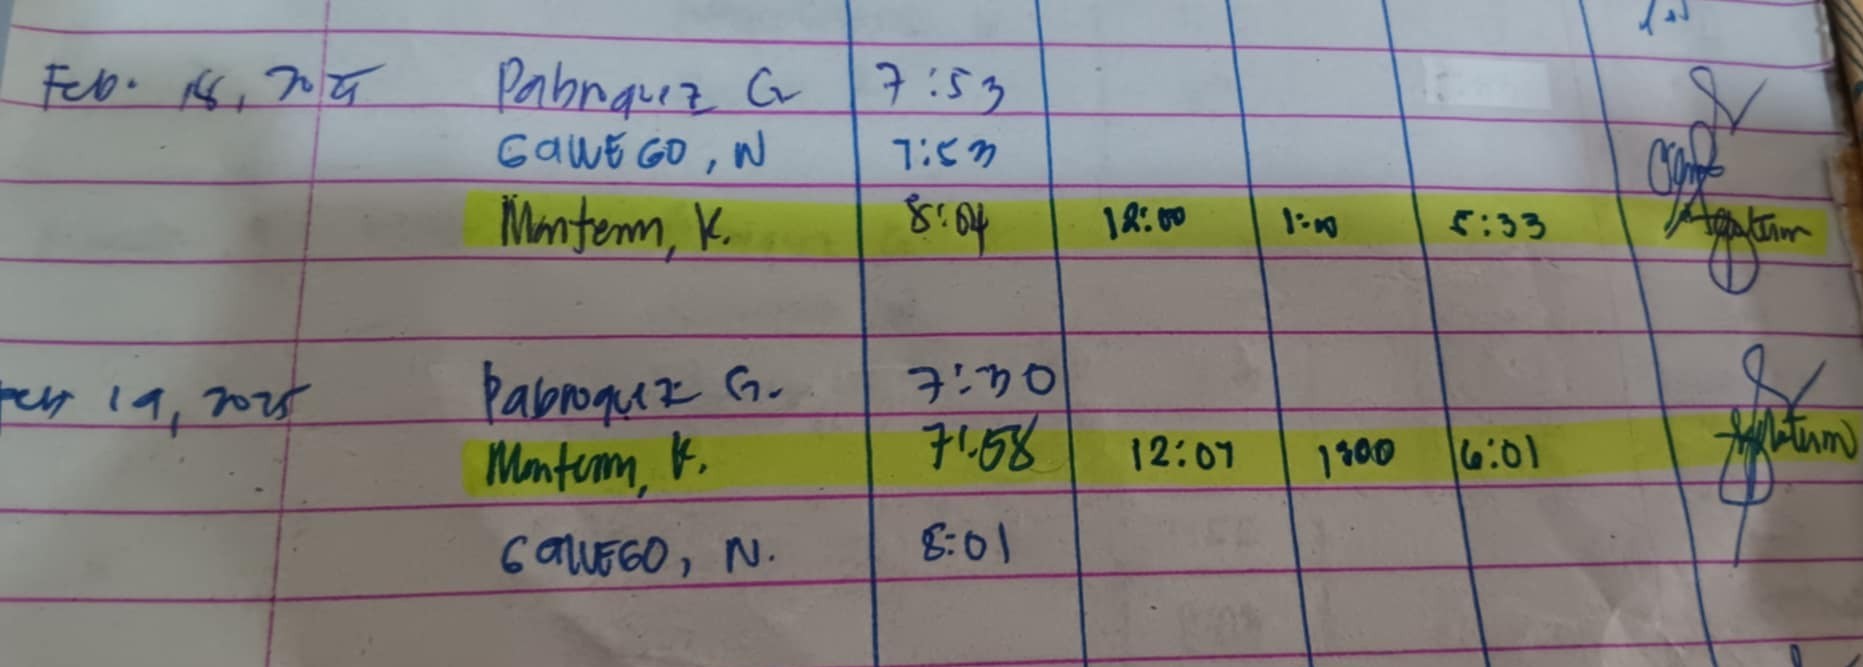 Feb. 18, 2025 Pabroquez G 7:53
GALLEGO, N 7:53
K. 8:04 12:00 1:00 5:33
Feb 19, 2025 Pabroquez G. 7:30
K. 7:58 12:07 1:00 6:01
GALLEGO, N. 8:01